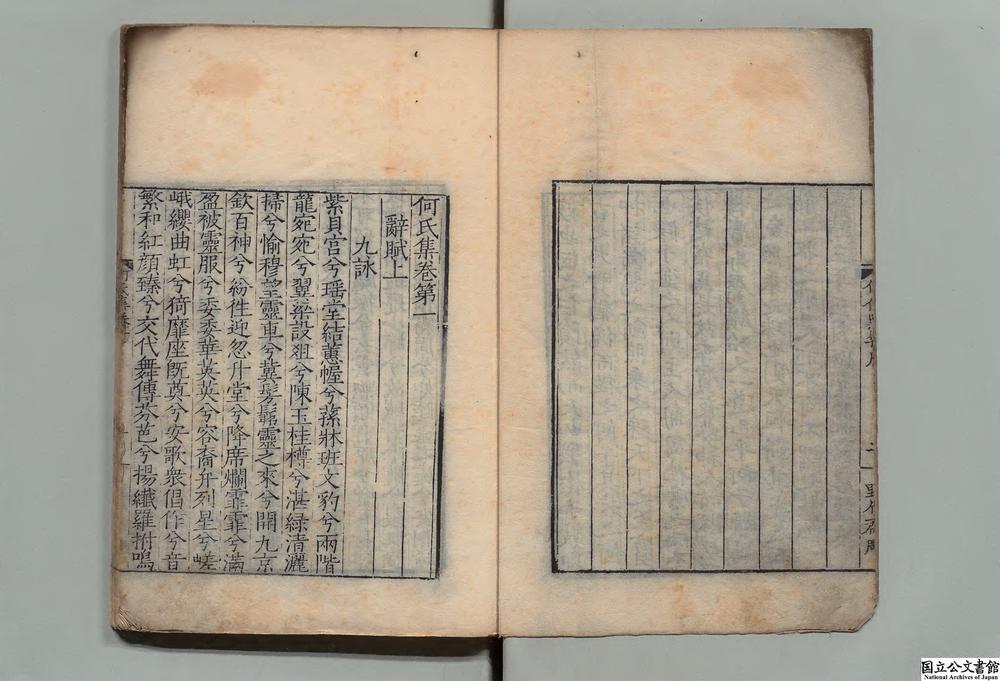 何氏集卷第一
辭賦上
九詠
紫貝宮兮瑶堂結蕙幄兮蓀牀班文豹兮兩階
龍宛宛兮翼梁設俎兮陳玉桂樽兮湛緑清灑
掃兮愉穆望靈車兮冀髣髴靈之來兮開九京
欽百神兮紛徃迎忽升堂兮降席爛霏霏兮滿
盈被靈服兮委委華英英兮容裔弁列星兮嵯
峨纓曲虹兮猗靡座旣奠兮安歌衆倡作兮音
繁和紅顔臻兮交代舞傳芬芭兮揚纖羅拊鳴
国立公文書館
National Archives of Japan